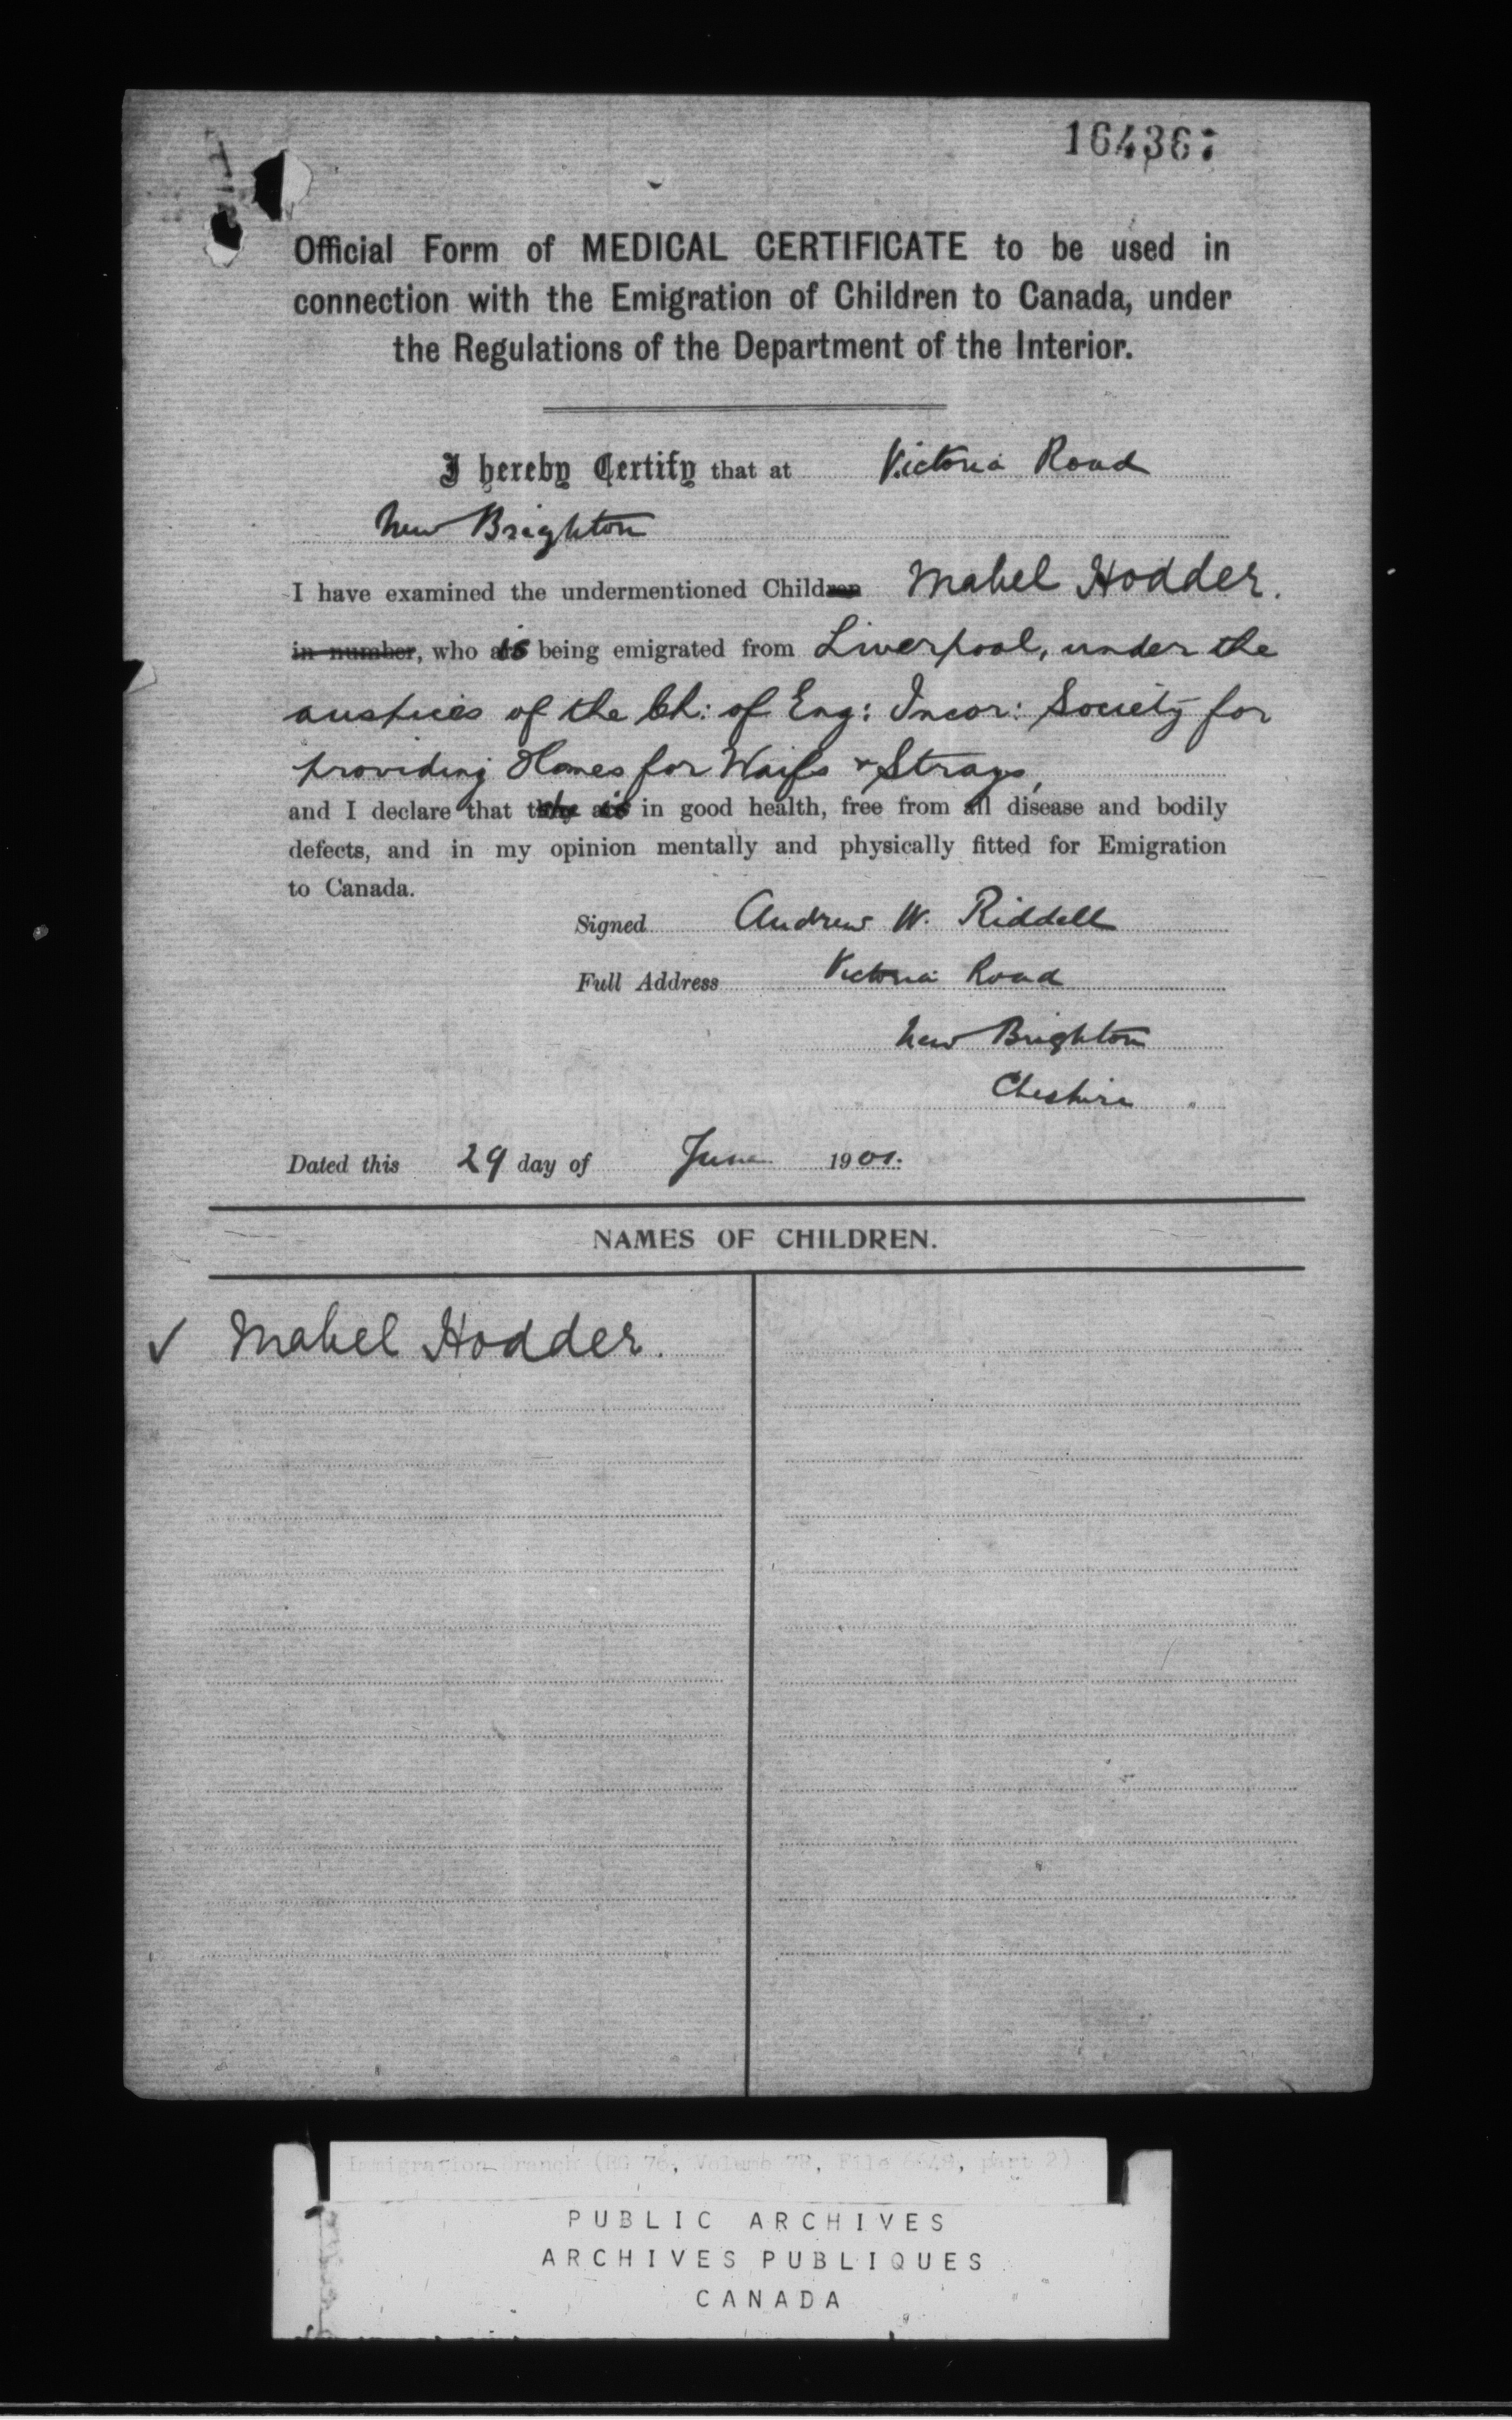 164367
Official Form of MEDICAL CERTIFICATE to be used in
connection with the Emigration of Children to Canada, under
the Regulations of the Department of the Interior.
I hereby Certify that at Victoria Road
New Brighton
I have examined the undermentioned Children Mabel Hodder.
in number, who is being emigrated from Liverpool, under the
auspices of the Ch: of Eng: Incor: Society for
providing Homes for Waifs & Strays,
and I declare that she is in good health, free from all disease and bodily
defects, and in my opinion mentally and physically fitted for Emigration
to Canada.
Signed Andrew W. Riddell
Full Address Victoria Road
New Brighton
Cheshire
Dated this 29 day of June 1901.
NAMES OF CHILDREN.
✓ Mabel Hodder.
Immigration Branch (RG 76, Volume 78, File, part 2)
PUBLIC ARCHIVES
ARCHIVES PUBLIQUES
CANADA